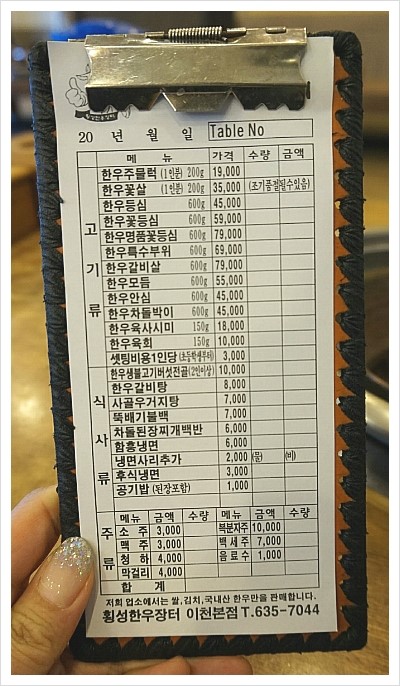 횡성한우장터
20 년 월 일 Table No
메 뉴 가격 수량 금액
고기류
한우주물럭 (1인분) 200g 19,000
한우꽃살 (1인분) 200g 35,000 (조기품절될수있음)
한우등심 600g 45,000
한우꽃등심 600g 59,000
한우명품꽃등심 600g 79,000
한우특수부위 600g 69,000
한우갈비살 600g 79,000
한우모듬 600g 55,000
한우안심 600g 45,000
한우차돌박이 600g 45,000
한우육사시미 150g 18,000
한우육회 150g 10,000
셋팅비용1인당 (초등학생부터) 3,000
식사류
한우생불고기버섯전골(2인이상) 10,000
한우갈비탕 8,000
사골우거지탕 7,000
뚝배기불백 7,000
차돌된장찌개백반 6,000
함흥냉면 6,000
냉면사리추가 2,000 (물) (비)
후식냉면 3,000
공기밥 (된장포함) 1,000
주류
메뉴 금액 수량 메뉴 금액 수량
소 주 3,000 복분자주 10,000
맥 주 3,000 백 세 주 7,000
청 하 4,000 음 료 수 1,000
막걸리 4,000
합 계
저희 업소에서는 쌀,김치,국내산 한우만을 판매합니다.
횡성한우장터 이천본점 T.635-7044